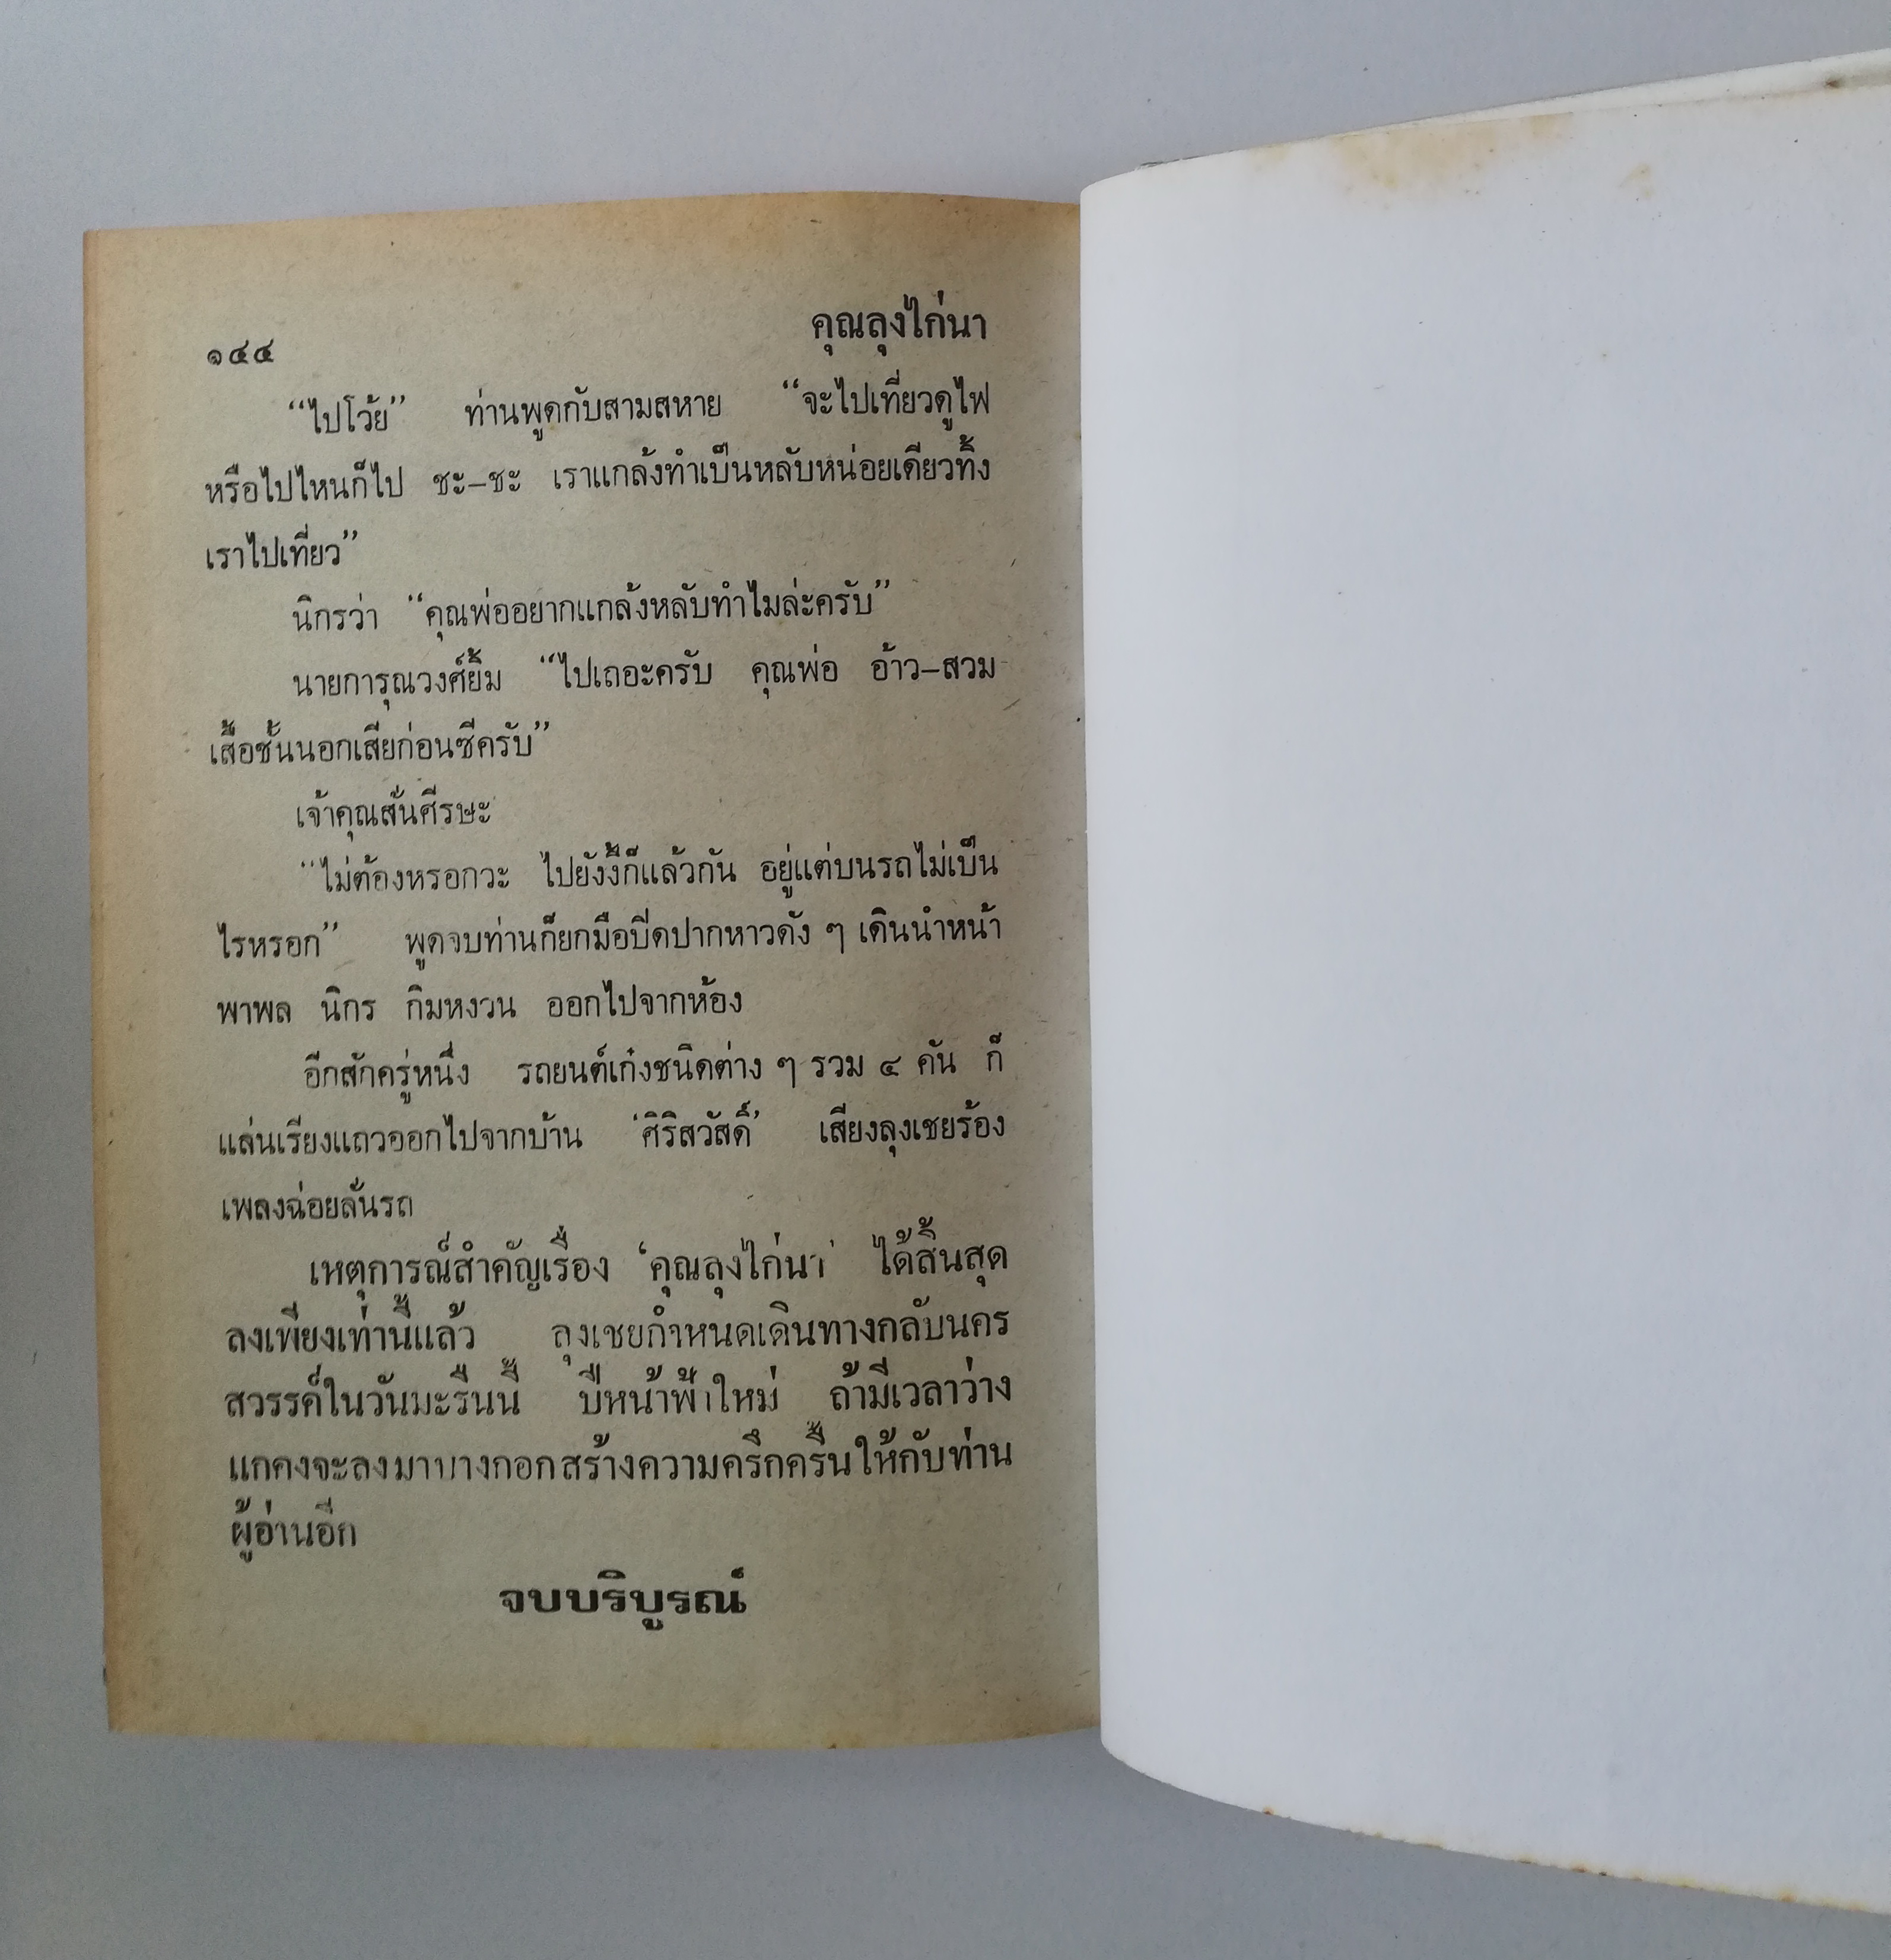 ๑๔๔ คุณลุงไก่นา
“ไปโว้ย” ท่านพูดกับสามสหาย “จะไปเที่ยวดูไฟ
หรือไปไหนก็ไป ชะ–ชะ เราแกล้งทำเป็นหลับหน่อยเดียวทิ้ง
เราไปเที่ยว”
นิกรว่า “คุณพ่ออยากแกล้งหลับทำไมล่ะครับ”
นายการุณวงศ์ยิ้ม “ไปเถอะครับ คุณพ่อ อ้าว–สวม
เสื้อชั้นนอกเสียก่อนซีครับ”
เจ้าคุณสั่นศีรษะ
“ไม่ต้องหรอกวะ ไปยังงี้ก็แล้วกัน อยู่แต่บนรถไม่เป็น
ไรหรอก” พูดจบท่านก็ยกมือปิดปากหาวดัง ๆ เดินนำหน้า
พาพล นิกร กิมหงวน ออกไปจากห้อง
อีกสักครู่หนึ่ง รถยนต์เก๋งชนิดต่าง ๆ รวม ๔ คัน ก็
แล่นเรียงแถวออกไปจากบ้าน ‘ศิริสวัสดิ์’ เสียงลุงเชยร้อง
เพลงฉ่อยลั่นรถ
เหตุการณ์สำคัญเรื่อง ‘คุณลุงไก่นา’ ได้สิ้นสุด
ลงเพียงเท่านี้แล้ว ลุงเชยกำหนดเดินทางกลับนคร
สวรรค์ในวันมะรืนนี้ ปีหน้าฟ้าใหม่ ถ้ามีเวลาว่าง
แกคงจะลงมาบางกอกสร้างความครึกครื้นให้กับท่าน
ผู้อ่านอีก
จบบริบูรณ์